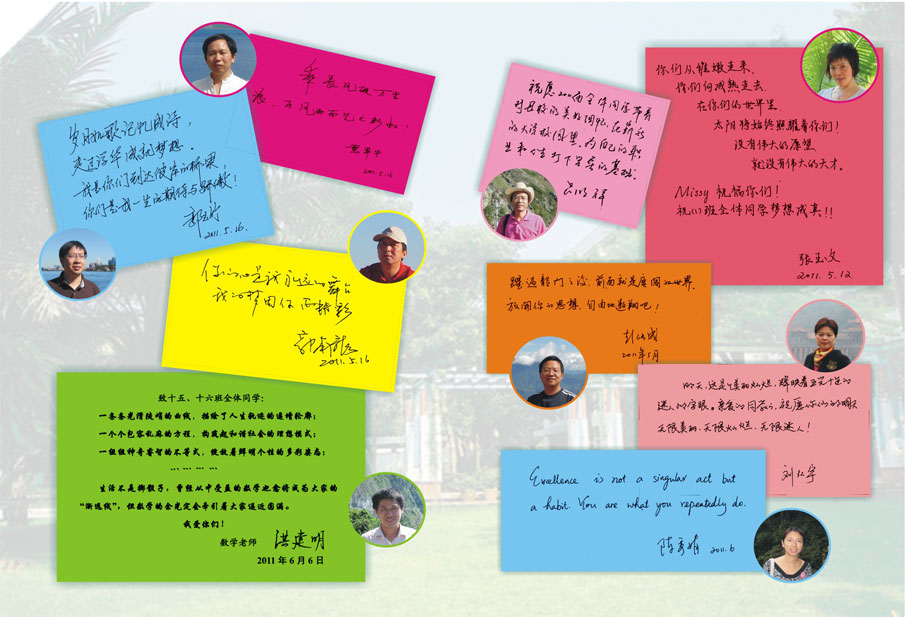 乘长风破万里
浪，
2011.5.16
岁月如歌记忆成诗，
走过浮华成就梦想。
我是你们到达彼岸的桥梁，
你们是我一生的期待与骄傲！
2011.5.16.
你的心是我永远的舞台
我的梦因你而精彩
2011.5.16
致十五、十六班全体同学：
一条条光滑陡峭的曲线，描绘了人生轨迹的遒婧轮廓；
一个个包容乱麻的方程，构筑起和谐社会的理想模式；
一组组神奇睿智的不等式，绽放着鲜明个性的多彩姿态；
… … … …
生活不是掷骰子，曾经从中受益的数学也会将成为大家的
“渐近线”，但数学的金光定会牵引着大家逼近圆满。
我爱你们！
数学老师 洪建明
2011 年 6 月 6 日
祝愿2011届全体同学带着
对母校的美好回忆，在崭新
的大学校园里，为自己的职
业和人生打下坚实的基础。
吕明祥
你们从稚嫩走来，
你们向成熟走去，
在你们的世界里，
太阳将始终照耀着你们！
没有伟大的愿望
就没有伟大的天才。
Missy 祝福你们！
祝我们班全体同学梦想成真！！
张玉文
2011.5.12
跃过龙门之后，前面就是广阔的世界，
放开你的思想，自由地翱翔吧！
2011年5月
明天，这是个美丽灿烂、辉映着五光十色的
迷人的字眼。亲爱的同学们，祝愿你们的明天
无限美丽、无限灿烂、无限迷人！
刘红宇
Excellence is not a singular act but
a habit. You are what you repeatedly do.
2011.6